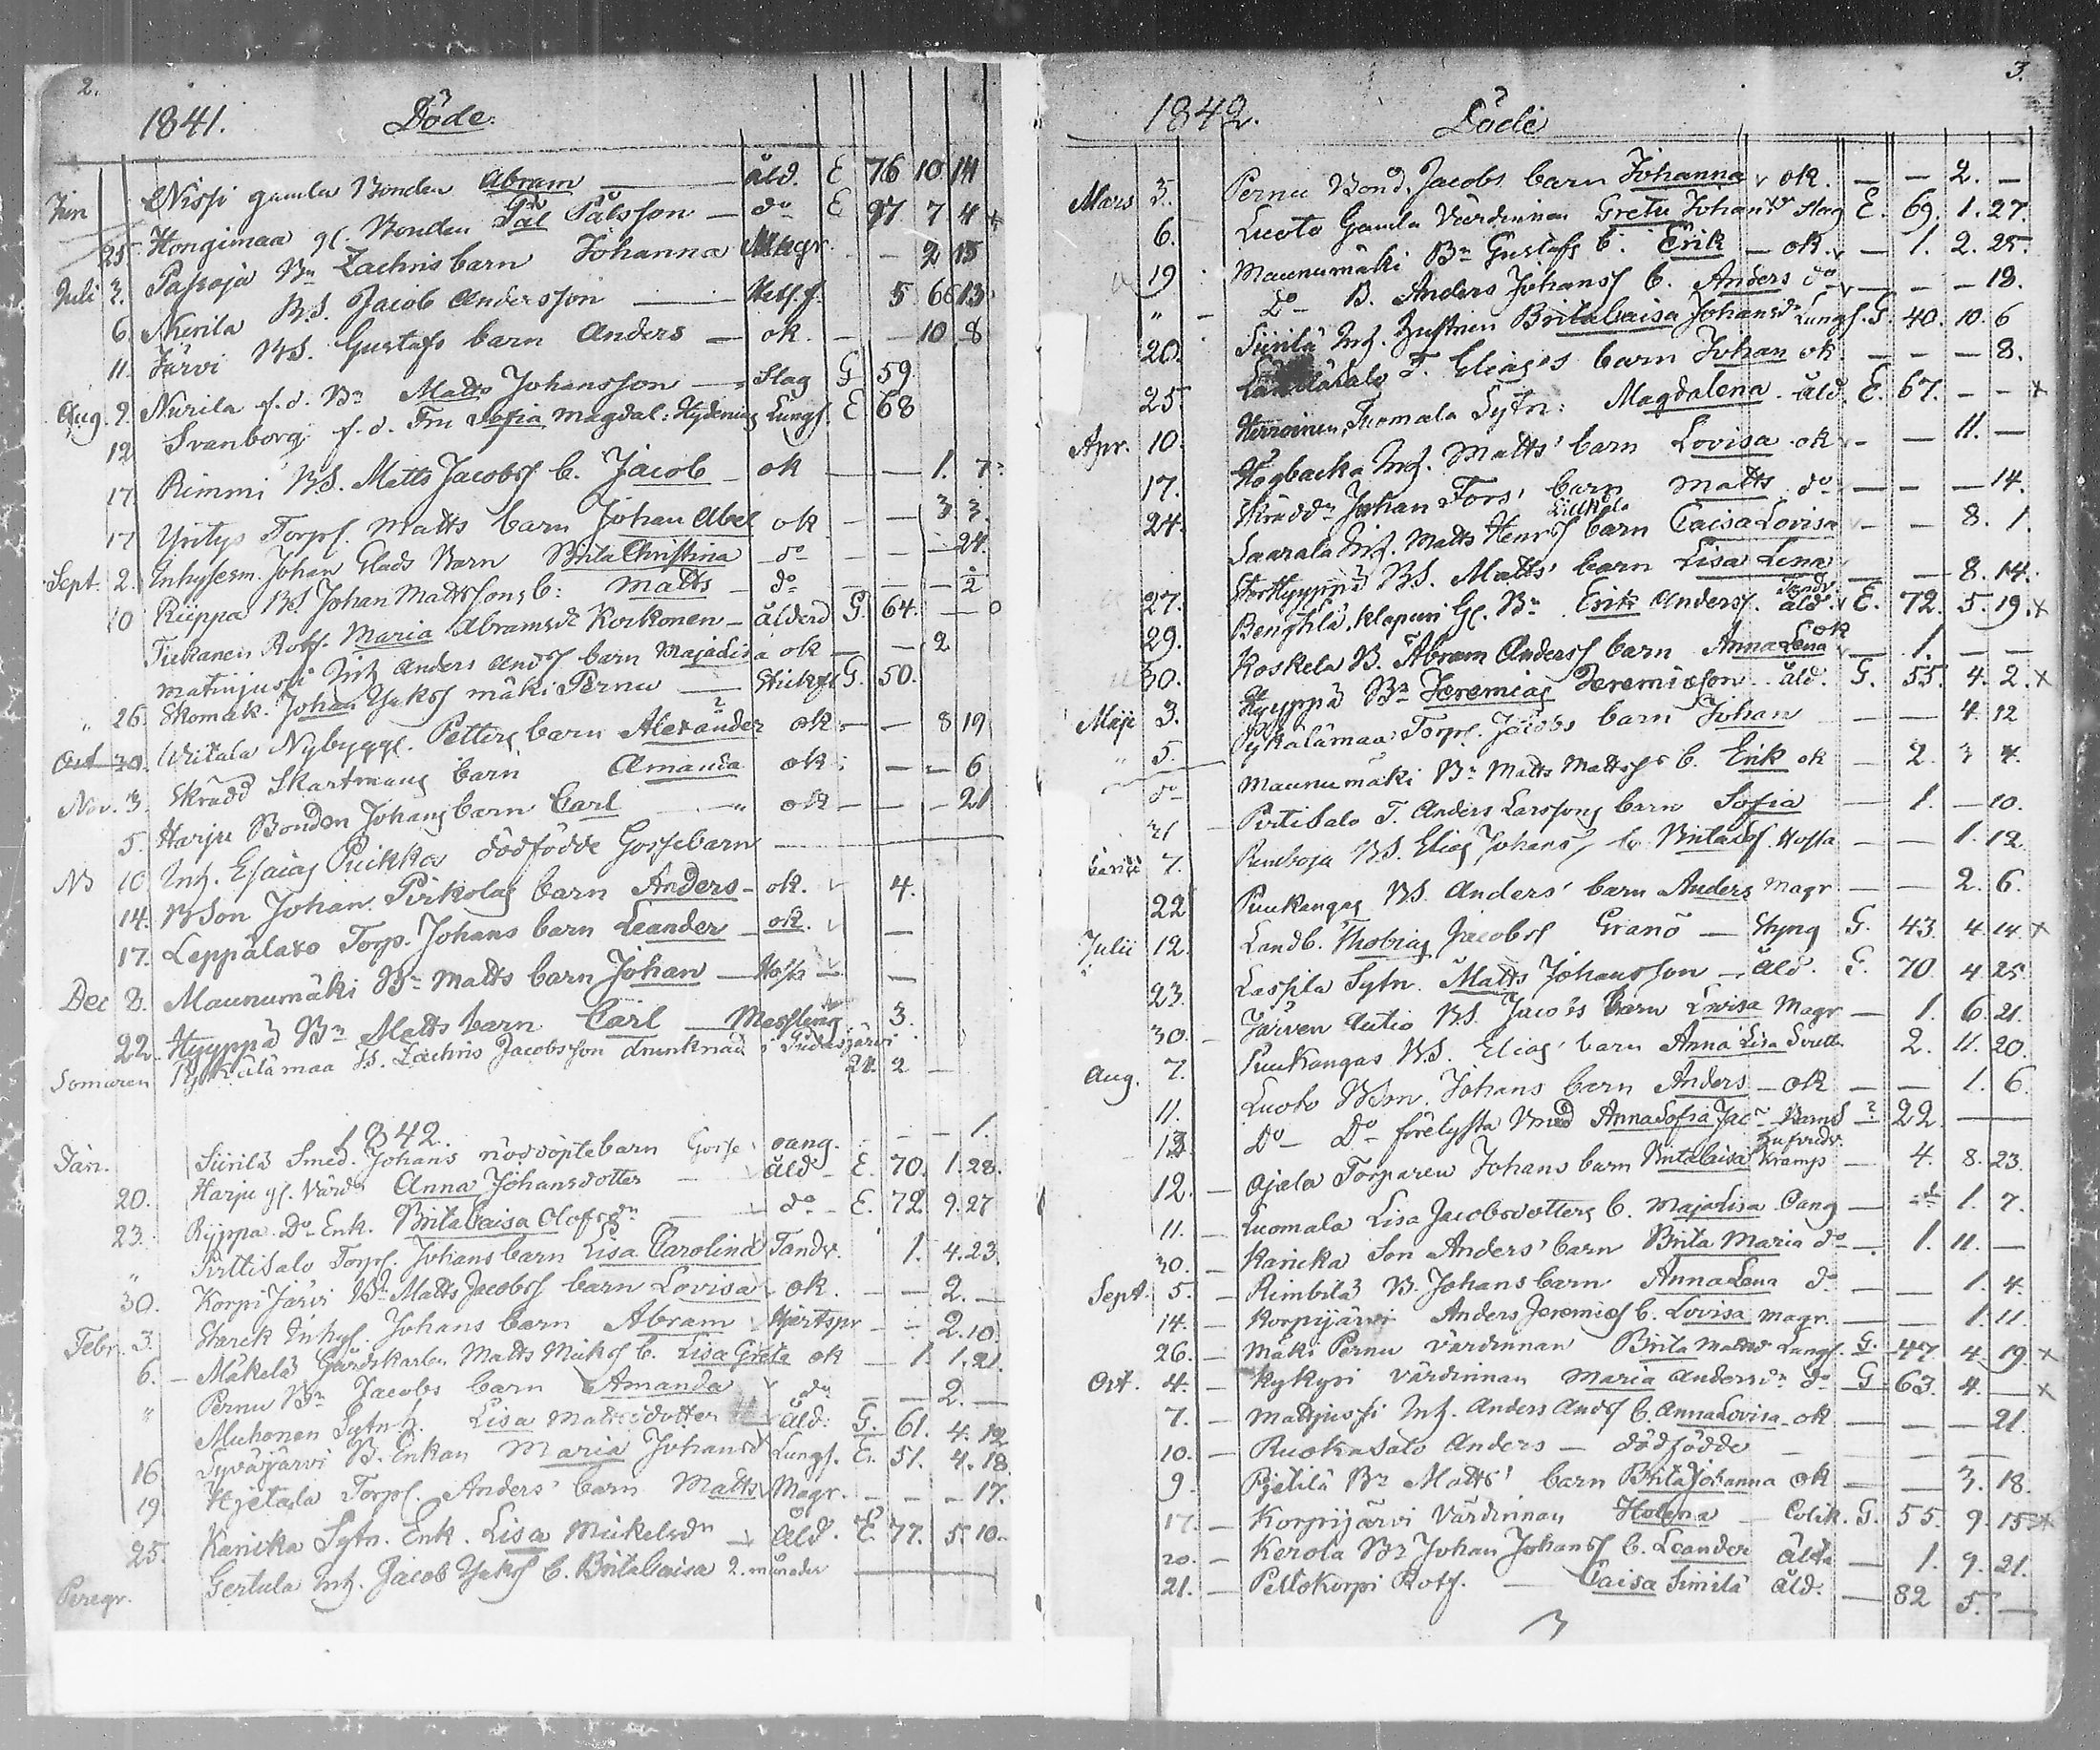 2.
1841. Döde.
Jun Nissi gamla Bonden Abram — åld. E 76 10 14
25. Hongimaa gl. Bonden Pål Pålsson — do E 97 7 4
Juli 2. Pasoja Bn Zachris barn Johanna Magr. — 2 15
6. Nurila B.S. Jacob Andersson — 5 6 13
11. Järvi BS. Gustafs barn Anders — ok. — — 10 8
Aug. 2. Nurila f.d. Bn Matts Johansson — Slag G 59
12 Svanborg f.d. Fru Sofia Magdal: Hydenius Lungs. E 68
17. Rimmi BS. Matts Jacobss b. Jacob — ok — — 1. 7.
17 Yritys Torps. Matts barn Johan Abel ok — — 3 3.
Sept. 2. Inhysesm. Johan Glads Barn Brita Christina do — — — 24.
10 Riippa BS Johan Mattssons b: Matts — do — — — 2
Tiekanen Rotf. Maria Abramsdr Korkonen — ålderd G. 64. — 0
Matinjussi Inh Anders Andss barn Majalisa ok — — 2
" 26. Skomak. Johan Yrkss mäki Pernu — Stickfl G. 50.
Oct 30. Witala Nybygge. Petters barn Alexander ok — — 8 19
Nov. 3. Skrädd Skartmans barn Amanda ok — — 6
5. Harju Bonden Johans barn Carl — " ok — — — 21
No 10 Inh. Esaias Puikkos dödfödde Gossebarn —
14. BSon Johan Pirkolas barn Anders — ok. 4.
17. Leppälaxo Torp. Johans barn Leander — ok. —
Dec 8. Maunumäki Bn Matts barn Johan — Hosta — —
22. Hyyppä Bn Matts barn Carl — Messling 3.
Somaren Pykälämaa B. Zachris Jacobsson drunknad i Pudasjärvi 21. 2 —
1842.
Jan. Siirilä Smed. Johans nöddöpte barn Gosse oang. — — — 1.
20. Harju gl. Värdn Anna Johansdotter — åld — E. 70. 1. 28.
23. Riyppa Do Enk. Brita Caisa Olofsdn — do — E. 72. 9. 27
" Pirttisalo Torps. Johans barn Lisa Carolina Tandv. 1. 4. 23.
30. Korpijärvi Bn Matts Jacobss barn Lovisa ok. — — 2. —
Febr. 3. Starck Inhys. Johans barn Abram Hjertspr — — 2. 10.
6. — Mäkelä Gårdskarlen Matts Mickss b. Lisa Greta ok — 1. 1. 21.
" Pernu Bn Jacobs barn Amanda do — — 2. —
Muhonen Sytn h. Lisa Mattsdotter åld: G. 61. 4. 12
16 Syväjärvi B. Enkan Maria Johansd Lungs. E. 51. 4. 18.
19. Hietala Torps. Anders' barn Matts Magr. — — — 17.
25. Kanika Sytn. Enk. Lisa Mickelsdn — åld. E. 77. 5. 10.
Peregr. Gertula Inh. Jacob Yrkss b. Brita Caisa 2. månader —
3.
1842. Döde
Mars 3. Pernu Bond. Jacobs barn Johanna ok. — — 2. —
6. Luoto Gamla Värdinnan Greta Johansdr Slag E. 69. 1. 27.
19 Maunumäki Bn Gustafs b. Erik — ok. — 1. 2. 25.
" — Do B. Anders Johanss b. Anders do — — — 18.
20. Siirilä Inh. Hustrun Brita Caisa Johansdr Lungs. G. 40. 10. 6
25. T. Elias's barn Johan ok — — — 8.
Apr. 10. Herroinen, Tuomala Sytn: Magdalena. åld. E. 67. — — x
17. Högbacka Inh. Matts' barn Lovisa ok — — 11. —
24. Skräddn Johan Fors' barn Matts do — — — 14.
Saarala Inh. Matts Henrss barn Caisa Lovisa — — 8. 1.
27. Storhyyppä BS. Matts' barn Lisa Lena — — 8. 14.
29. Benghlä, Klapuri Gl. Bn Erik Anderss. Tandv. åld. E. 72. 5. 19. x
30. Koskela B. Abram Anderss barn Anna Lena ok 1. — —
Maji 3. Hyyppä Bn Jeremias Jeremiesson. åld. G. 55. 4. 2. x
" 5. Pykälämaa Torps. Jacobs barn Johan — — 4. 12
do Maunumäki Bn Matts Mattss b. Erik ok — 2. 3 4.
21 — Pirtisalo T. Anders Larssons barn Sofia — 1. — 10.
Junii 7. Rimboja BS. Elias Johanss b. Hosta — — 1. 12.
22 Puukangas BS. Anders' barn Anders Magr — — 2. 6.
Julii 12. Landb. Thobias Jacobss Granö — Styng G. 43. 4. 14. x
23. Laspila Sytn. Matts Johansson — åld. G. 70. 4 25.
30. — Järven Autio BS. Jacobs barn Lovisa Magr — 1. 6. 21.
Aug. 7. Puukangas BS. Elias' barn Anna Lisa 2. 11. 20.
11. Luoto BSon. Johans barn Anders — ok — — 1. 6.
13. Do — Do förelysta Anna Sofia 22 — —
12. — Ajala Torparen Johans barn Brita Caisa Kramp — 4. 8. 23.
11. — Luomala Lisa Jacobsdotters b. Majalisa Oang — — 1. 7.
30. — Kanicka Son Anders' barn Brita Maria do — 1. 11. —
Sept. 5. — Rimbilä B. Johans barn Anna Lena do — — 1. 4.
14. — Korpijärvi Anders Jeremiess b. Lovisa magr. — — 1. 11.
26. — Mäki Pernu Värdinnan Brita Mattsd Lungs. G. 47. 4. 19. x
Oct. 4. — Kykyri Värdinnan Maria Andersdn do G 63. 4. — x
7. — Mattjussi Inh. Anders Andss b. Anna Lovisa ok — — — 21.
10. — Ruokasalo Anders — dödfödde — — — —
9. Pjetilä Bn Matts' barn Brita Johanna ok — — 3. 18.
17. — Korpijärvi Värdinnan Helena — Colik. G. 55. 9. 15. x
20. — Kerola Bn Johan Johanss b. Leander Älta — 1. 9. 21.
21. — Pellokorpi Rotf. — Caisa Simila åld. — 82 5. —